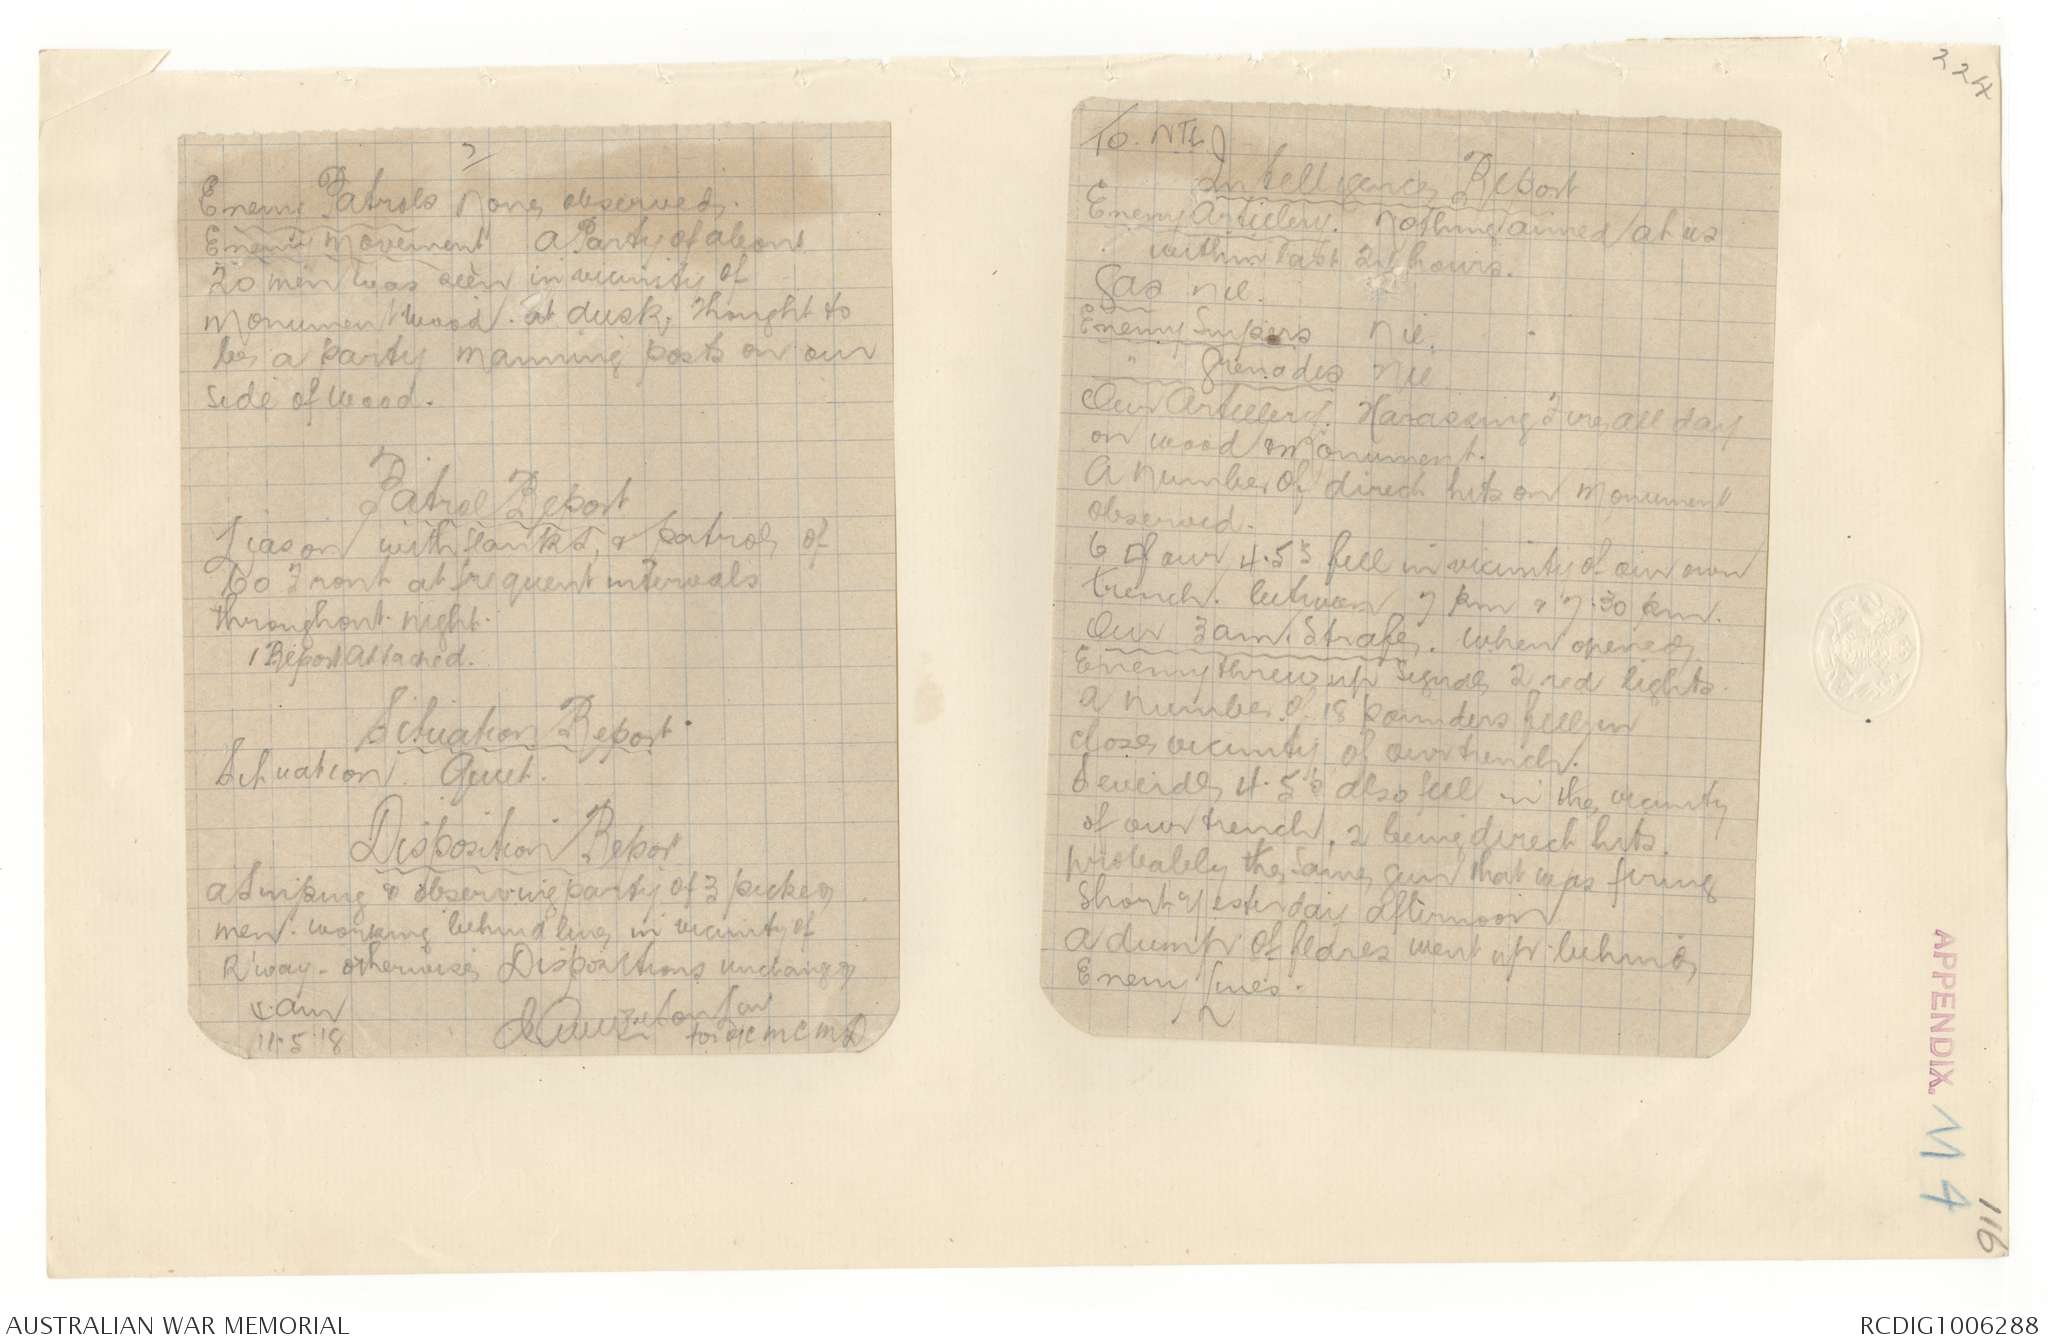 224
To. NTL
Intelligence Report
Enemy Artillery. Nothing aimed at us
within last 24 hours.
Gas nil.
Enemy Snipers Nil.
" Grenades Nil
Our Artillery. Harassing Fire all day
on wood & Monument.
A Number of direct hits on Monument
observed.
6 of our 4.5s fell in vicinity of our own
trench. between 7 pm & 7.30 pm.
Our 3am. Strafe. when opened
Enemy threw up Signal 2 red lights.
A Number of 18 pounders fell in
close vicinity of our trench.
Several 4.5's also fell in the vicinity
of our trench, 2 being direct hits.
probably the same gun that was firing
short yesterday afternoon
A dump of flares went up behind
Enemy lines.
2
Enemy Patrols None observed.
Enemy Movement A Party of about
20 men was seen in vicinity of
Monument Wood. at dusk, thought to
be a party manning posts on our
side of wood.
Patrol Report
Liason with flanks, & patrol of
Co Front at frequent intervals
throughout night.
1 Report Attached.
Situation Report
Situation. Quiet.
Disposition Report
A Sniping & observing party of 3 picked
men. working behind line in vicinity of
R'way. otherwise Dispositions unchanged
4. am
11.5.18
for OC
APPENDIX. M4
116
AUSTRALIAN WAR MEMORIAL
RCDIG1006288